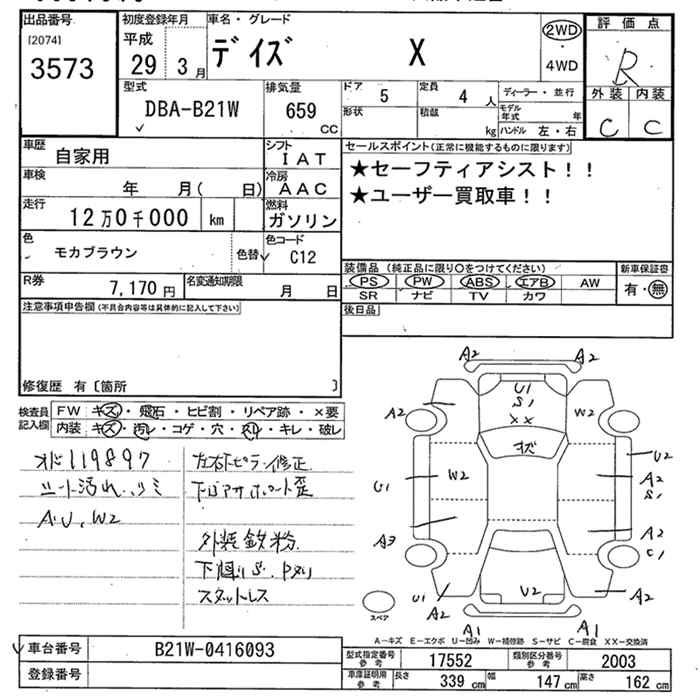 出品番号
[2074]
3573
初度登録年月
平成
29 3月
車名・グレード
デイズ X
2WD
・
4WD
評価点
R
外装 内装
C C
型式
DBA-B21W
排気量
659
cc
ドア 5
定員 4 人
形状
積載 kg
ディーラー・並行
モデル年式 年
ハンドル 左・右
車歴
自家用
シフト
IAT
車検
年 月( 日)
冷房
AAC
走行
12万0千000 km
燃料
ガソリン
色
モカブラウン
色替
色コード
C12
R券
7,170円
名変通知期限
月 日
セールスポイント(正常に機能するものに限ります)
★セーフティアシスト!!
★ユーザー買取車!!
装備品(純正品に限り○をつけてください)
PS PW ABS エアB AW
SR ナビ TV カワ
新車保証書
有・無
後日品
注意事項申告欄(不具合内容等は具体的に記入して下さい)
修復歴 有〔箇所 〕
検査員
記入欄
FW キズ・飛石・ヒビ割・リペア跡・×要
内装 キズ・汚レ・コゲ・穴・スレ・キレ・破レ
119897
シート汚れ、シミ
AU、W2
左右ピラー修正
外装鉄粉
スタットレス
A2 A2
U1
S1
XX
A2
W2
キズ
U2
W2
A2
S1
U1
A3
A2
C1
U1
A2
U2
A2
A1 A1
スペア
A-キズ E-エクボ U-凹み W-補修跡 S-サビ C-腐食 XX-交換済
車台番号
B21W-0416093
登録番号
型式指定番号
参考
17552
類別区分番号
参考
2003
車庫証明用
参考
長さ 339 cm
幅 147 cm
高さ 162 cm